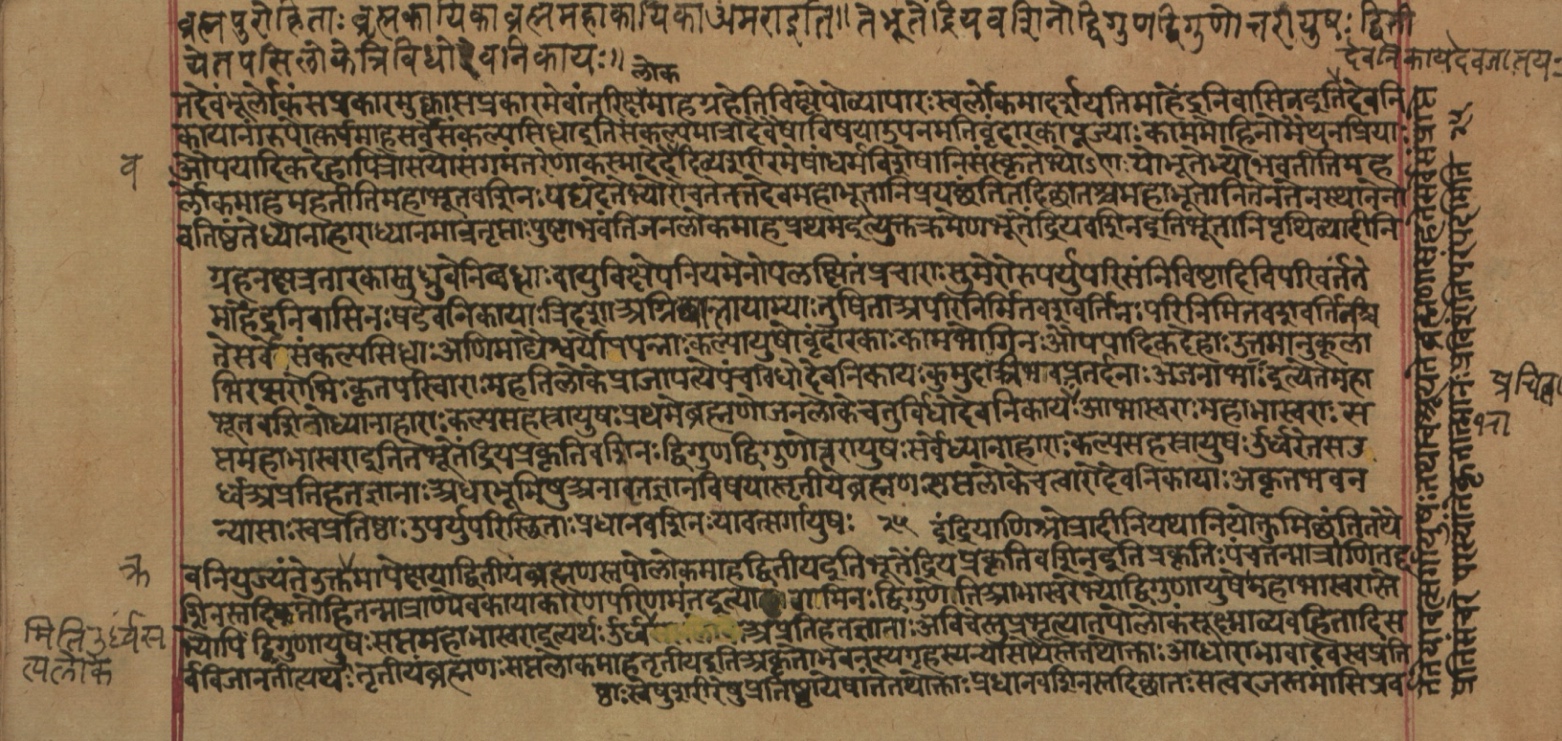 ब्रह्मपुरोहिताः ब्रह्मकायिका ब्रह्ममहाकायिका अमरा इति॥ ते भूतेंद्रियवशिनो द्विगुणद्विगुणोत्तरायुषः द्विती
येतपसि लोके त्रिविधो देवनिकायः॥
लोक
देवनिकाये देवजातय
मदेवंभूर्लोकंसप्रकारमुक्त्वासप्रकारमेवांतरिक्षमाहग्रहेतिविक्षेपोव्यापारःस्वर्लोकमादर्शयतिमाहेंद्रनिवासिनइतिदेवनि
कायानांरूपोत्कर्षमाहसर्वसंकल्पसिधाइतिसंकल्पमात्रादेवैषांविषयाउपनमंतिवृंदारकापूज्याःकाममाहिनोमैथुनप्रियाः
व
औपपादिकदेहापित्रोसंयोगमंतरेणाकस्मादेवदिव्यशरीरमेषांधर्मविशेषानिसंस्कृतेभ्योऽणुःयोभूतेभ्योभवतीतिमह
र्लोकमाहमहतीतिमहाभूतवशिनःयद्यदेतेभ्योरोचतेतत्तदेवमहाभूतानिप्रयछंतितदिछातश्चमहाभूतानितेनतेनस्थानेना
वतिष्ठंतेध्यानाहाराध्यानमात्रतृप्ताःपुष्टाभवंतिजनलोकमाहप्रथमइत्युक्तक्रमेणभूतेंद्रियवशिनइतिभूतानिपृथिव्यादीनि
ग्रहनक्षत्रतारकास्तुध्रुवेनिबधाःवायुविक्षेपनियमेनोपलक्षितप्रचाराःसुमेरोरुपर्युपरिसंनिविष्टादिविपरिवर्तंते
माहेंद्रनिवासिनःषडेवनिकायाःत्रिदशाअग्निष्वात्तायाम्याःतुषिताअपरिनिर्मितवशवर्तिनःपरिनिमितवशवर्तिनश्च
तेसर्वेसंकल्पसिधाःअणिमाद्यैश्वर्योपपन्नाःकल्पायुषोवृंदारकाःकामभोगिनःऔपपादिकदेहाःउत्तमानुकूला
भिरप्सरोभिःकृतपरिवाराःमहतिलोकेप्राजापत्येपंचविधोदेवनिकायःकुमुदाऋभवःप्रतर्दनाःअंजनाभाःइत्येतेमहा
भूतवशिनोध्यानाहाराःकल्पसहस्रायुषःप्रथमेब्रह्मणोजनलोकेचतुर्विधोदेवनिकायःआभास्वराःमहाभास्वराःस
त्यमहाभास्वराइतितेभूतेंद्रियप्रकृतिवशिनःद्विगुणद्विगुणोत्तरायुषःसर्वेध्यानाहाराःकल्पसहस्रायुषःऊर्ध्वरेतसउ
र्ध्वंअप्रतिहतज्ञानाःअधरभूमिषुअनावृतज्ञानविषयास्तृतीयेब्रह्मणःसत्यलोकेचत्वारोदेवनिकायाःअकृतभवन
न्यासाःस्वप्रतिष्ठाःउपर्युपरिस्थिताःप्रधानवशिनःयावत्सर्गायुषः २५ इंद्रियाणिश्रोत्रादीनियथानियोक्तुमिछंतितथै
क्र
वनियुज्यंतेउक्तमापेक्षयाद्वितीयंब्रह्मणस्तपोलोकमाहद्वितीयइतिभूतेंद्रियप्रकृतिवशिनइतिप्रकृतिःपंचतन्मात्राणितद्व
शिनस्तदिछातोहितन्मात्राण्येवकायाकारेणपरिणमंतइत्या गामिनःद्विगुणेतिआभास्वरेभ्योद्विगुणायुषोमहाभास्वरास्ते
मितिउर्ध्वंस
त्यलोके
भ्योपिद्विगुणायुषःसत्यमहाभास्वराइत्यर्थःऊर्ध्वं अप्रतिहतज्ञानाःअवीचेस्तुप्रभृत्यातपोलोकंसूक्ष्माव्यवहितादिस
र्वंविजानंतीत्यर्थःतृतीयंब्रह्मणःसत्यलोकमाहतृतीयइतिअकृतोभवनस्यगृहस्यन्यासोयैस्तेतथोक्ताःआधाराभावादेवस्वप्रति
ष्ठाःस्वेषुशरीरेषुप्रतिष्ठायेषांतेतथोक्ताःप्रधानवशिनस्तदिछातःसत्वरजस्तमांसिप्रव
र्तंतेयावत्सर्गायुषःतथाचश्रूयतेब्रह्मणासहतेसर्वेसंप्राप्ते
प्रतिसंचरे परस्यांतेकृतात्मानःप्रविशंतिपरंपदमिति २५